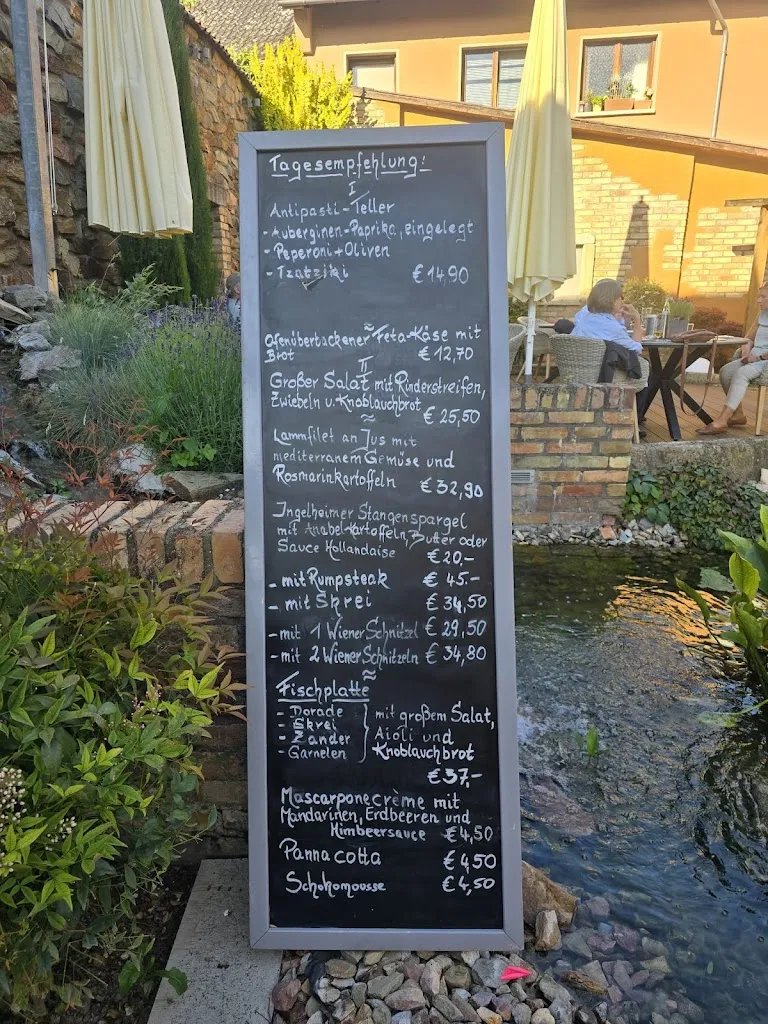 Tagesempfehlung:
I
Antipasti-Teller
- Auberginen-Paprika, eingelegt
- Peperoni + Oliven
- Tzatziki € 14,90
≈
Ofenüberbackener Feta-Käse mit
Brot € 12,70
II
Großer Salat mit Rinderstreifen,
Zwiebeln u. Knoblauchbrot € 25,50
≈
Lammfilet an Jus mit
mediterranem Gemüse und
Rosmarinkartoffeln € 32,90
Ingelheimer Stangenspargel
mit Anabel-Kartoffeln, Butter oder
Sauce Hollandaise € 20.-
- mit Rumpsteak € 45.-
- mit Skrei € 34,50
- mit 1 Wiener Schnitzel € 29,50
- mit 2 Wiener Schnitzeln € 34,80
≈
Fischplatte
- Dorade
- Skrei
- Zander
- Garnelen
mit großem Salat,
Aioli und
Knoblauchbrot
€ 37,-
Mascarponecrème mit
Mandarinen, Erdbeeren und
Himbeersauce € 4,50
Panna cotta € 4,50
Schokomousse € 4,50